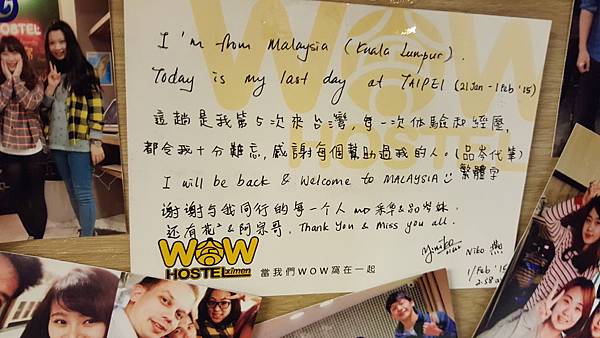 HOSTEL
I'm from Malaysia (Kuala Lumpur).
Today is my last day at TAIPEI (21 Jan - 1 Feb '15)
這趟是我第5次來台灣,每一次体驗和經歷,
都令我十分難忘,感謝每個幫助過我的人。(品岑代筆)
繁體字
I will be back & Welcome to MALAYSIA
谢谢与我同行的每一个人 and 采樂&品岑妹,
还有花² & 阿泉哥, Thank You & Miss you all.
Niko
1/Feb '15
2:58a
WOW
HOSTEL ximen
當我們WOW窩在一起
WOW